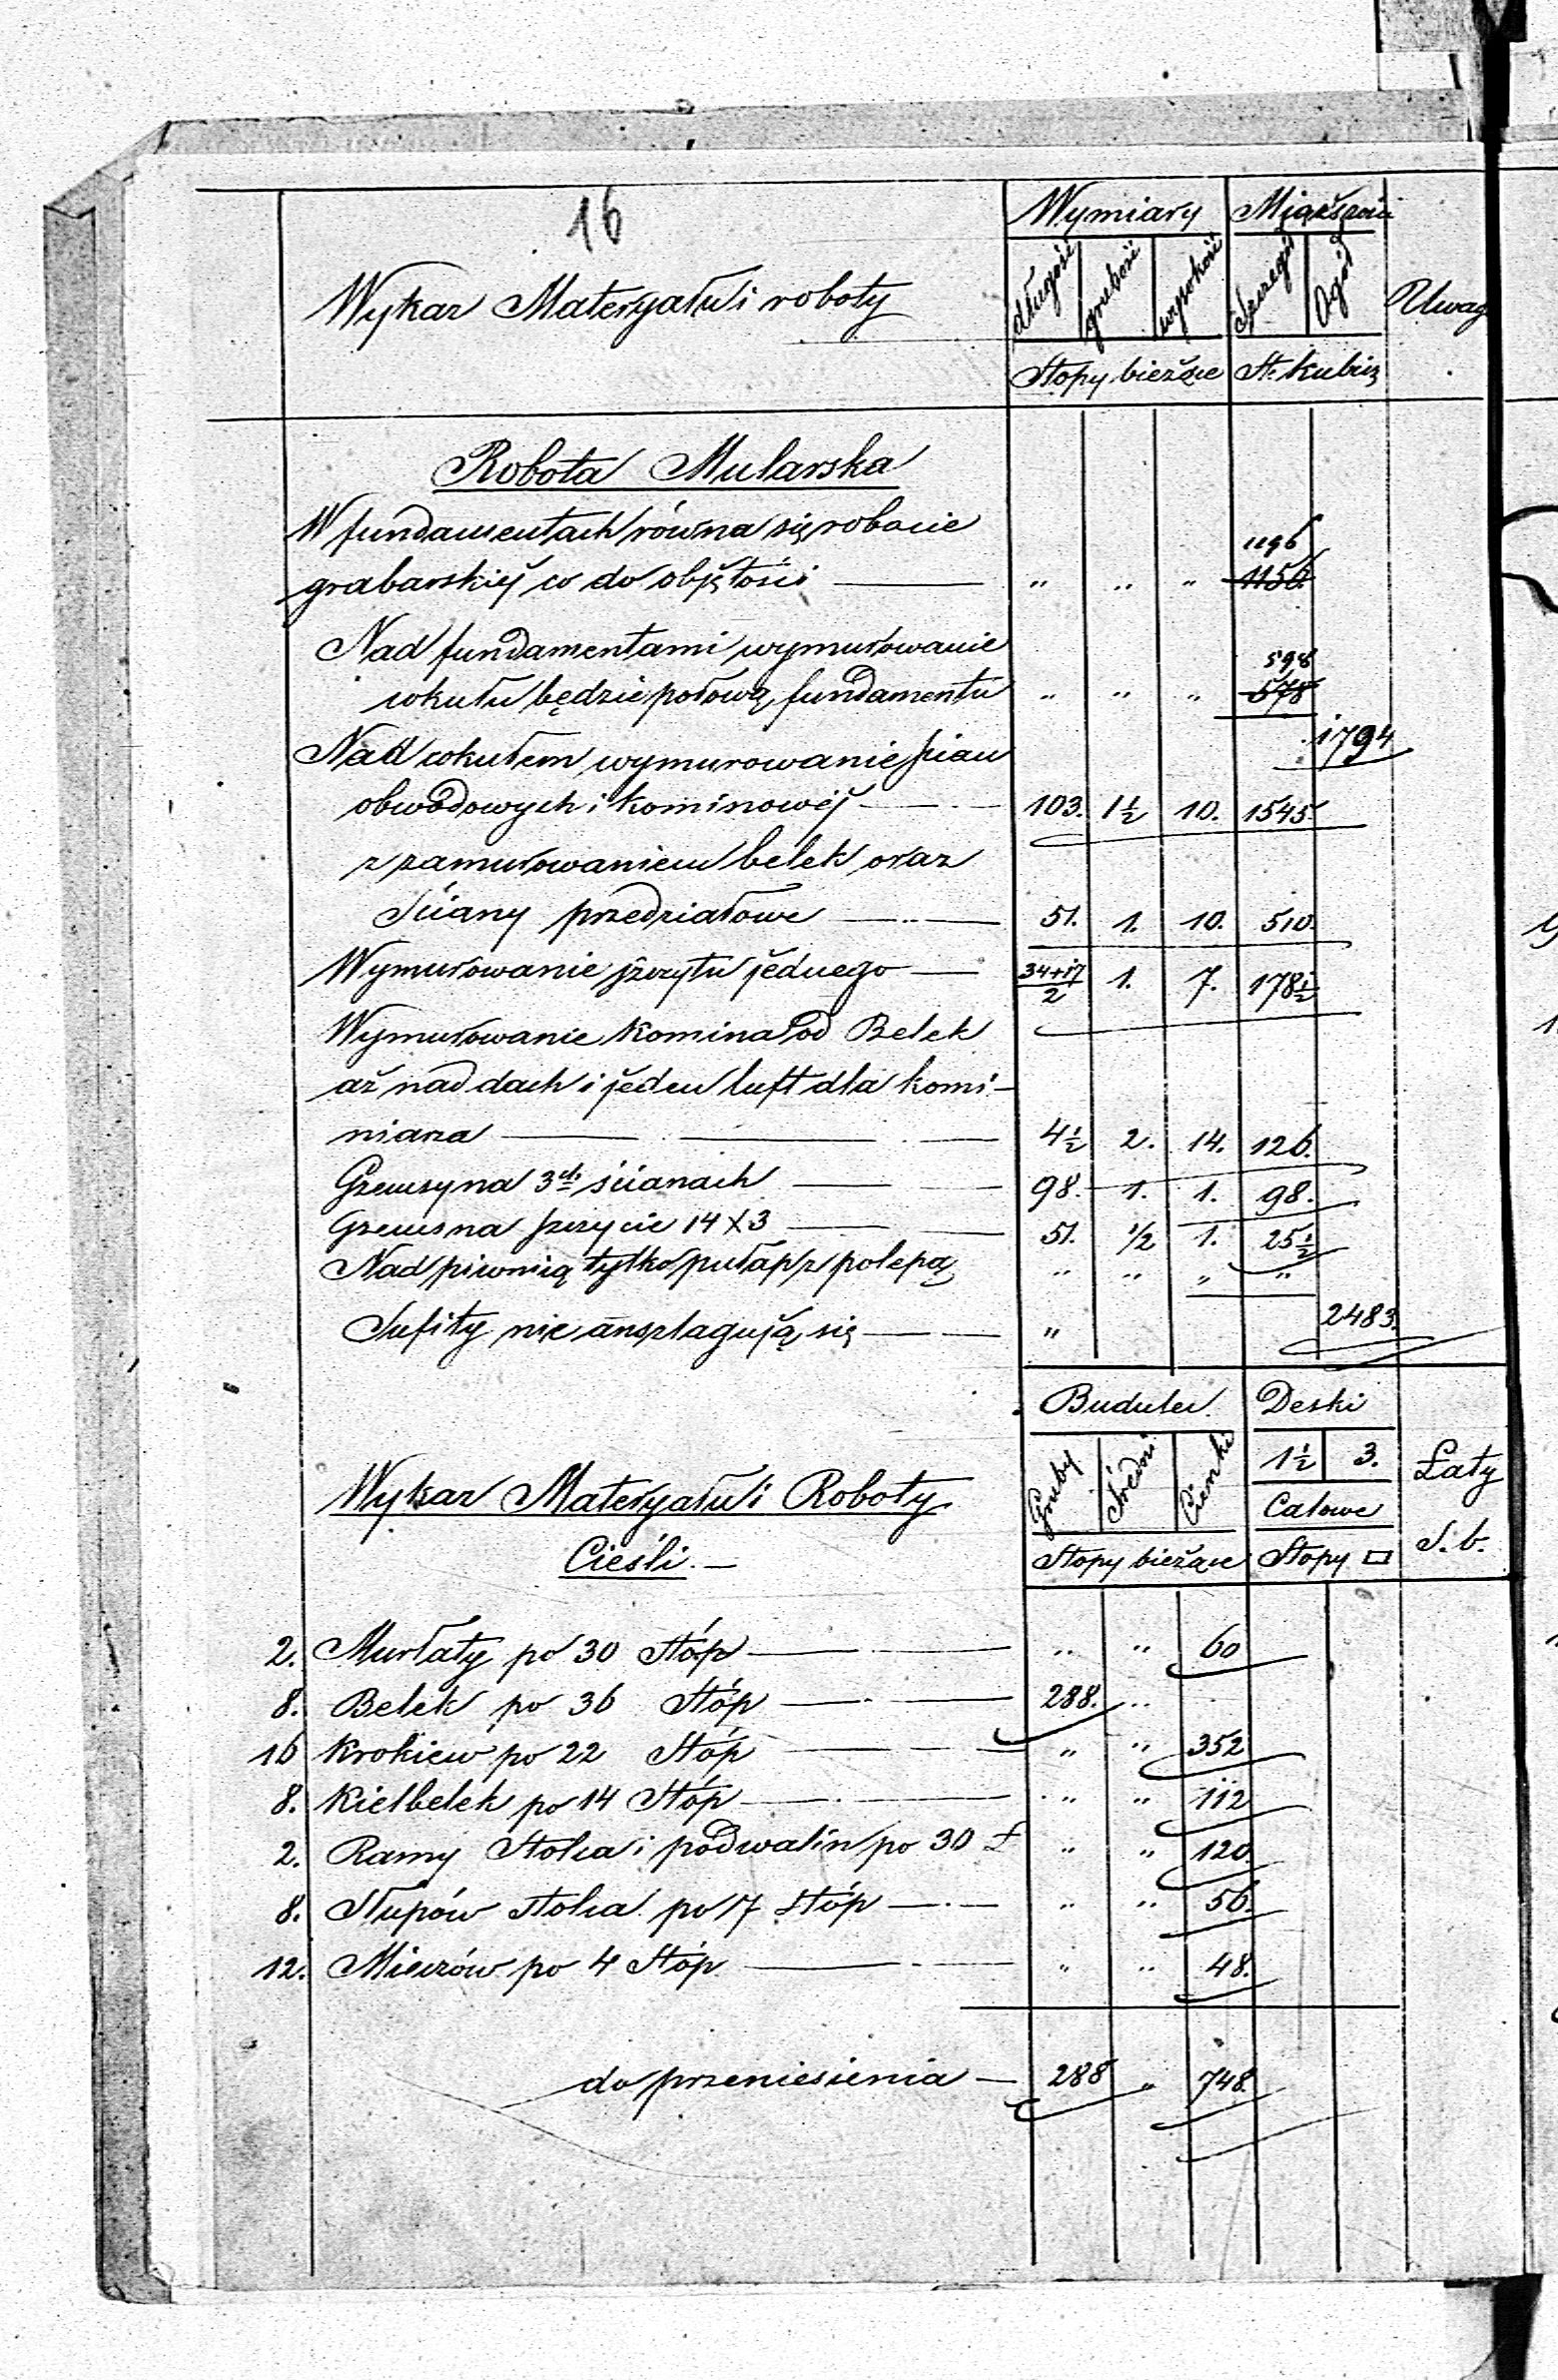 16
Wymiary Miąższość
Wykaz Materyału i roboty długość grubość wysokość Szczegół Ogół Uwag
Stopy bieżące St. kubicz
Robota Mularska
W fundamentach równa się robocie 1196
grabarskiej co do objętości — " " " 1156.
Nad fundamentami wymurowanie 598
cokułu będzie połową fundamentu " " " 578
1794
Nad cokułem wymurowanie ścian
obwodowych i kominowéj — 103. 1½ 10. 1545.
z zamurowaniem belek oraz
Ściany przedziałowe — 51. 1. 10. 510.
Wymurowanie szczytu jednego — 34+17/2 1. 7. 178½
Wymurowanie komina od Belek
aż nad dach i jeden luft dla komi-
niarza — 4½ 2. 14. 126.
Gzemsy na 3ch ścianach — 98. 1. 1. 98.
Gzems na szczycie 14 X 3 — 51. ½ 1. 25½
Nad piwnicą tylko pułap z polepą " " " "
Sufity nie anszlagują się — "
2483.
Budulec Deski
Gruby Średni Cienki 1½ 3. Łaty
Wykaz Materyału i Roboty Calowe
Cieśli. — Stopy bieżące Stopy □ S. b.
2. Murłaty po 30 stóp — " " 60
8. Belek po 36 Stóp — 288. "
16 Krokiew po 22 Stóp — " " 352
8. Kielbelek po 14 Stóp — " " 112
2. Ramy Stolca i podwalin po 30 " " 120.
8. Słupów stolca po 7 stóp — " " 56.
12. Mieczów po 4 Stóp — " " 48.
do przeniesienia — 288 " 748.